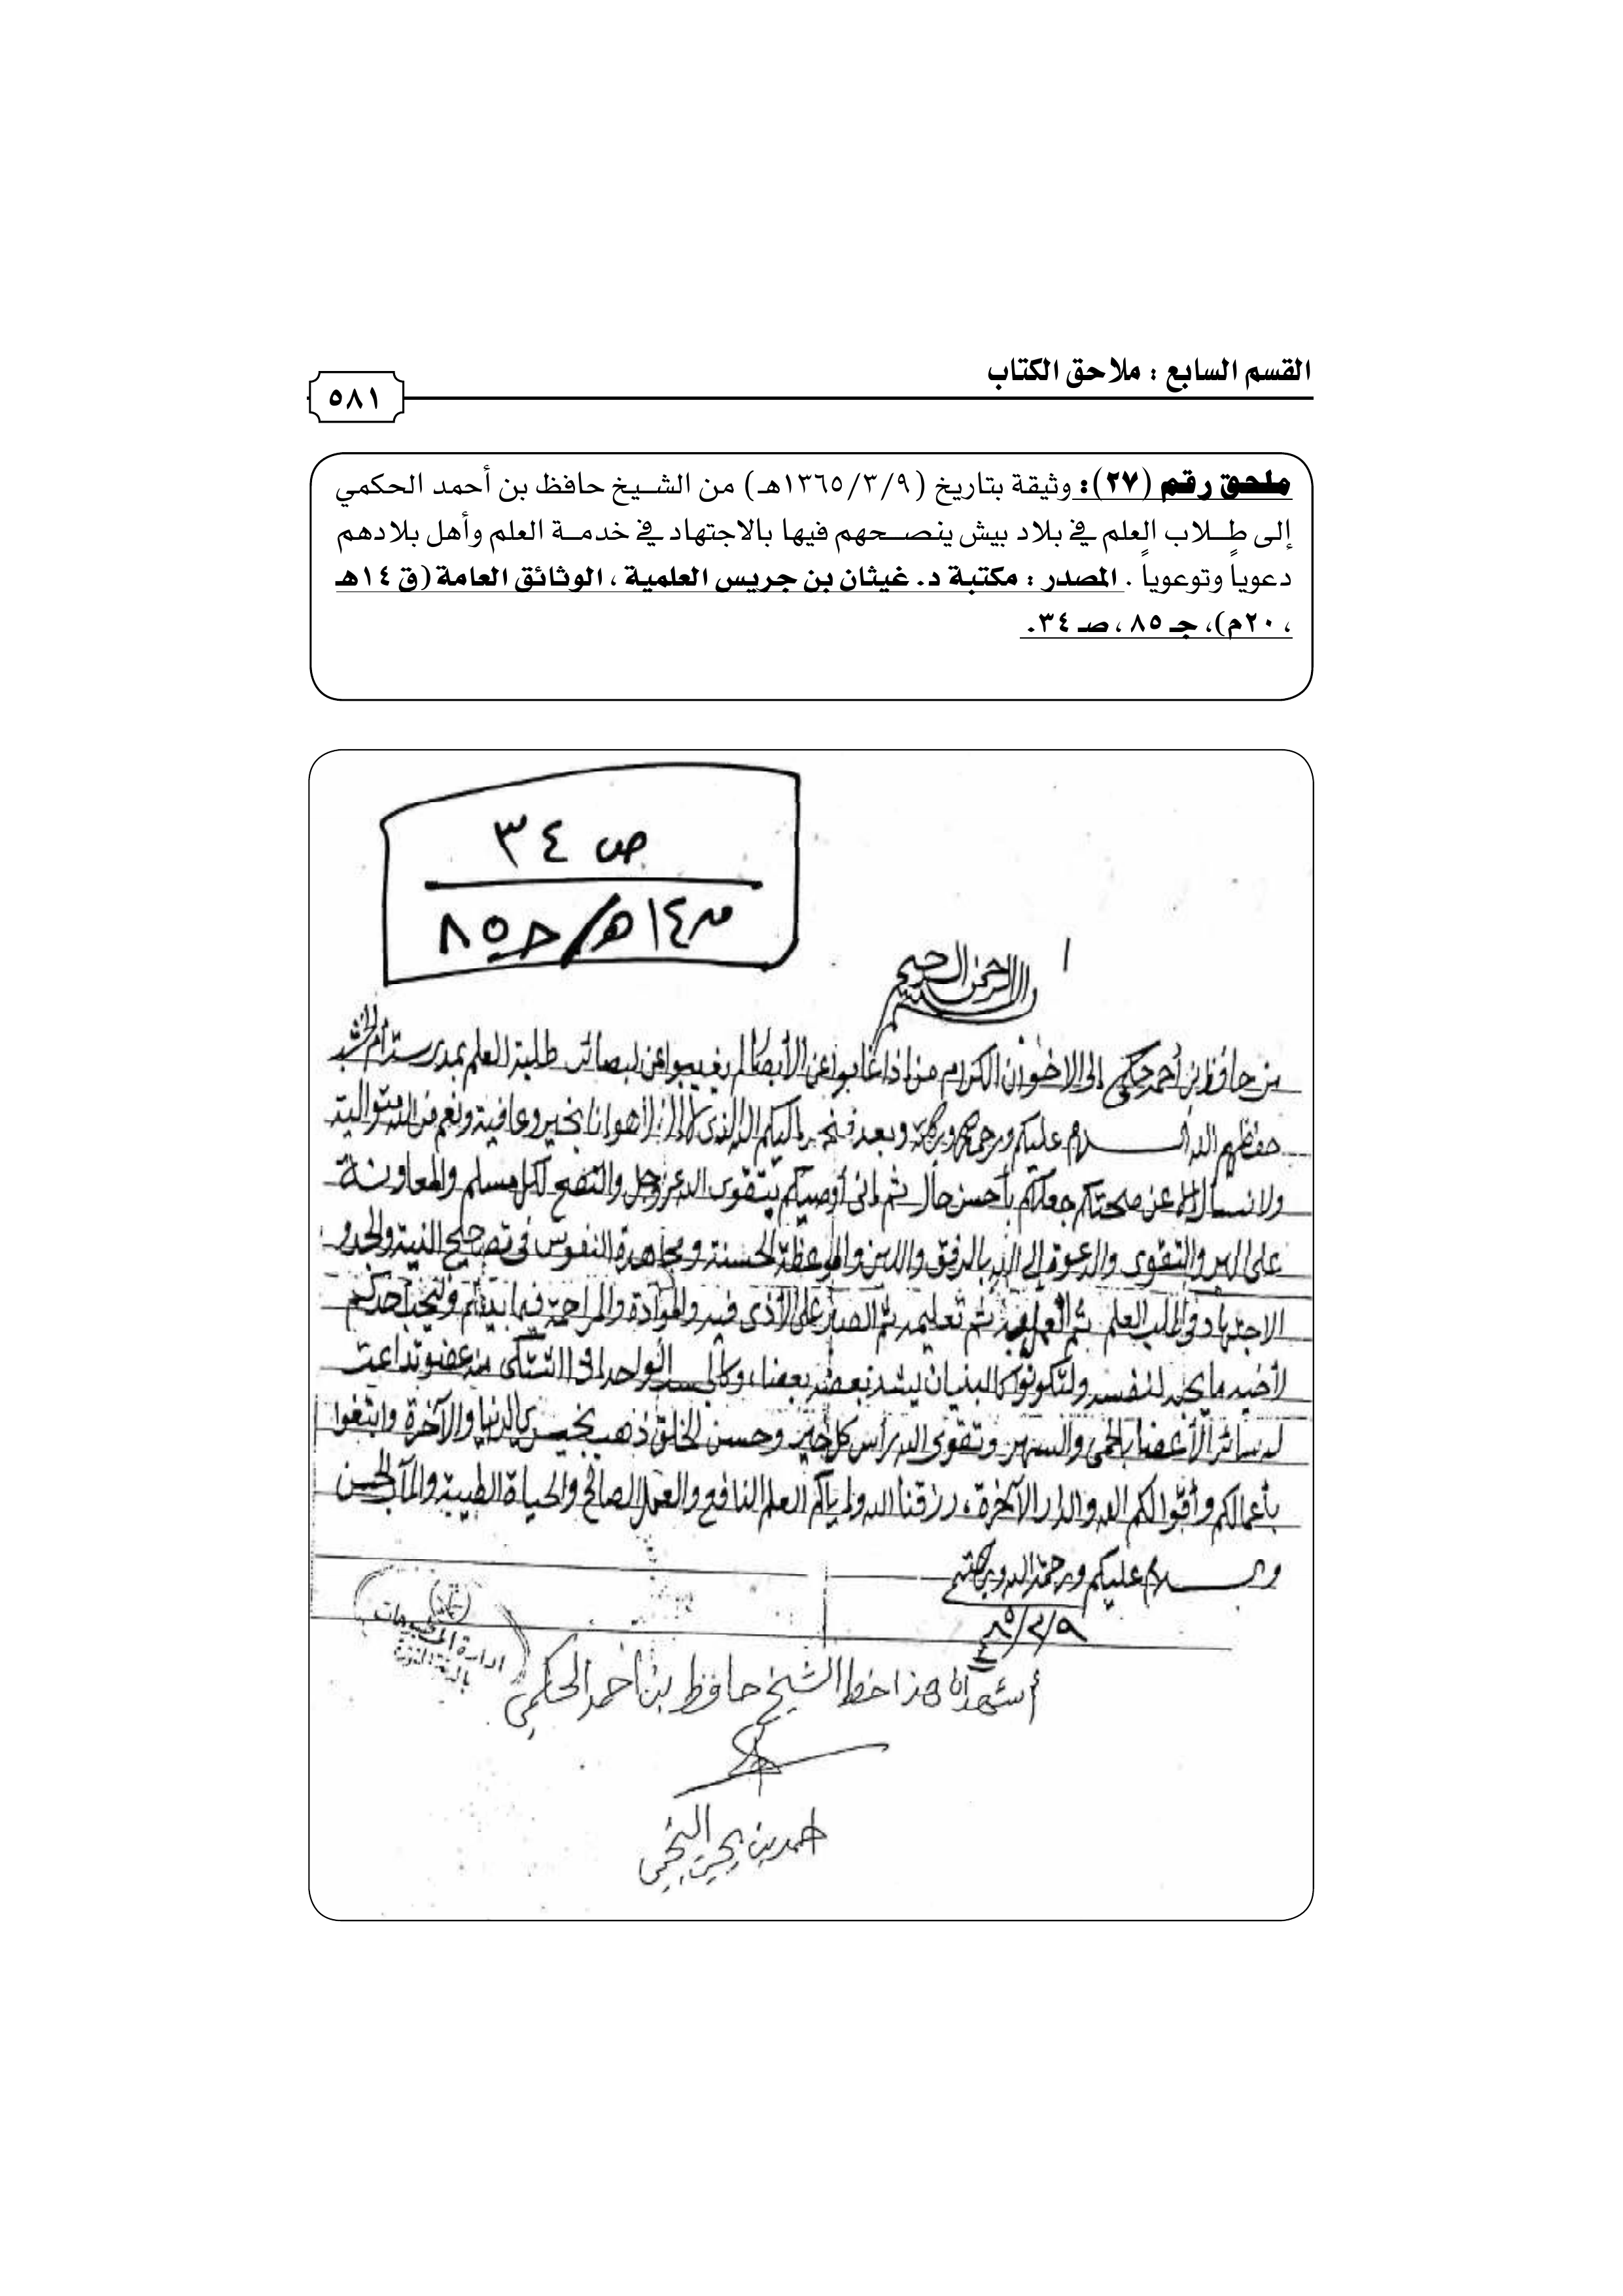 القسم السابع : ملاحق الكتاب
٥٨١
ملحق رقم (٢٧): وثيقة بتاريخ (١٣٦٥/٣/٩هـ) من الشيخ حافظ بن أحمد الحكمي
إلى طلاب العلم في بلاد بيش ينصحهم فيها بالاجتهاد في خدمة العلم وأهل بلادهم
دعوياً وتوعوياً . المصدر : مكتبة د. غيثان بن جريس العلمية ، الوثائق العامة (ق ١٤هـ
، ٢٠م)، جـ ٨٥ ، صـ ٣٤.
ص ٣٤
١٤هـ/ جـ ٨٥
بسم الله الرحمن الرحيم
من حافظ بن أحمد حكمي إلى الاخوان الكرام من اذا غابوا عن الأبصار لم يغيبوا عن البصائر طلبة العلم بمدرسة أم الخشب
حفظهم الله السلام عليكم ورحمة الله وبركاته وبعد فنحمد إليكم الله الذي لا إله إلا هو وانا بخير وعافية ونعم من الله متوالية
ولا نسأل إلا عن صحتكم جعلكم بأحسن حال ثم إني أوصيكم بتقوى الله عز وجل والنصح لكل مسلم والمعاونة
على البر والتقوى والدعوة إلى الله بالرفق واللين والموعظة الحسنة ومجاهدة النفوس في تصحيح النية والجد و
الاجتهاد في طلب العلم ثم العمل به ثم تعليمه ثم الصبر على الأذى فيه والموادة والمراحمة فيما بينكم وليحب أحدكم
لأخيه ما يحب لنفسه ولتكونوا كالبنيان يشد بعضه بعضا، وكالجسد الواحد اذا اشتكى منه عضو تداعت
له سائر الأعضا بالحمى والسهر وتقوى الله رأس كل خير وحسن الخلق ذهب بخيري الدنيا والآخرة وابتغوا
بأعمالكم وأقوالكم الله والدار الآخرة، رزقنا الله وإياكم العلم النافع والعمل الصالح والحياة الطيبة والمآب الحسن
والسلام عليكم ورحمة الله وبركاته
٩/٣/٦٥
ادارة المطبوعات
أشهد أن هذا خط الشيخ حافظ بن أحمد الحكمي
احمد بن يحيى النجمي